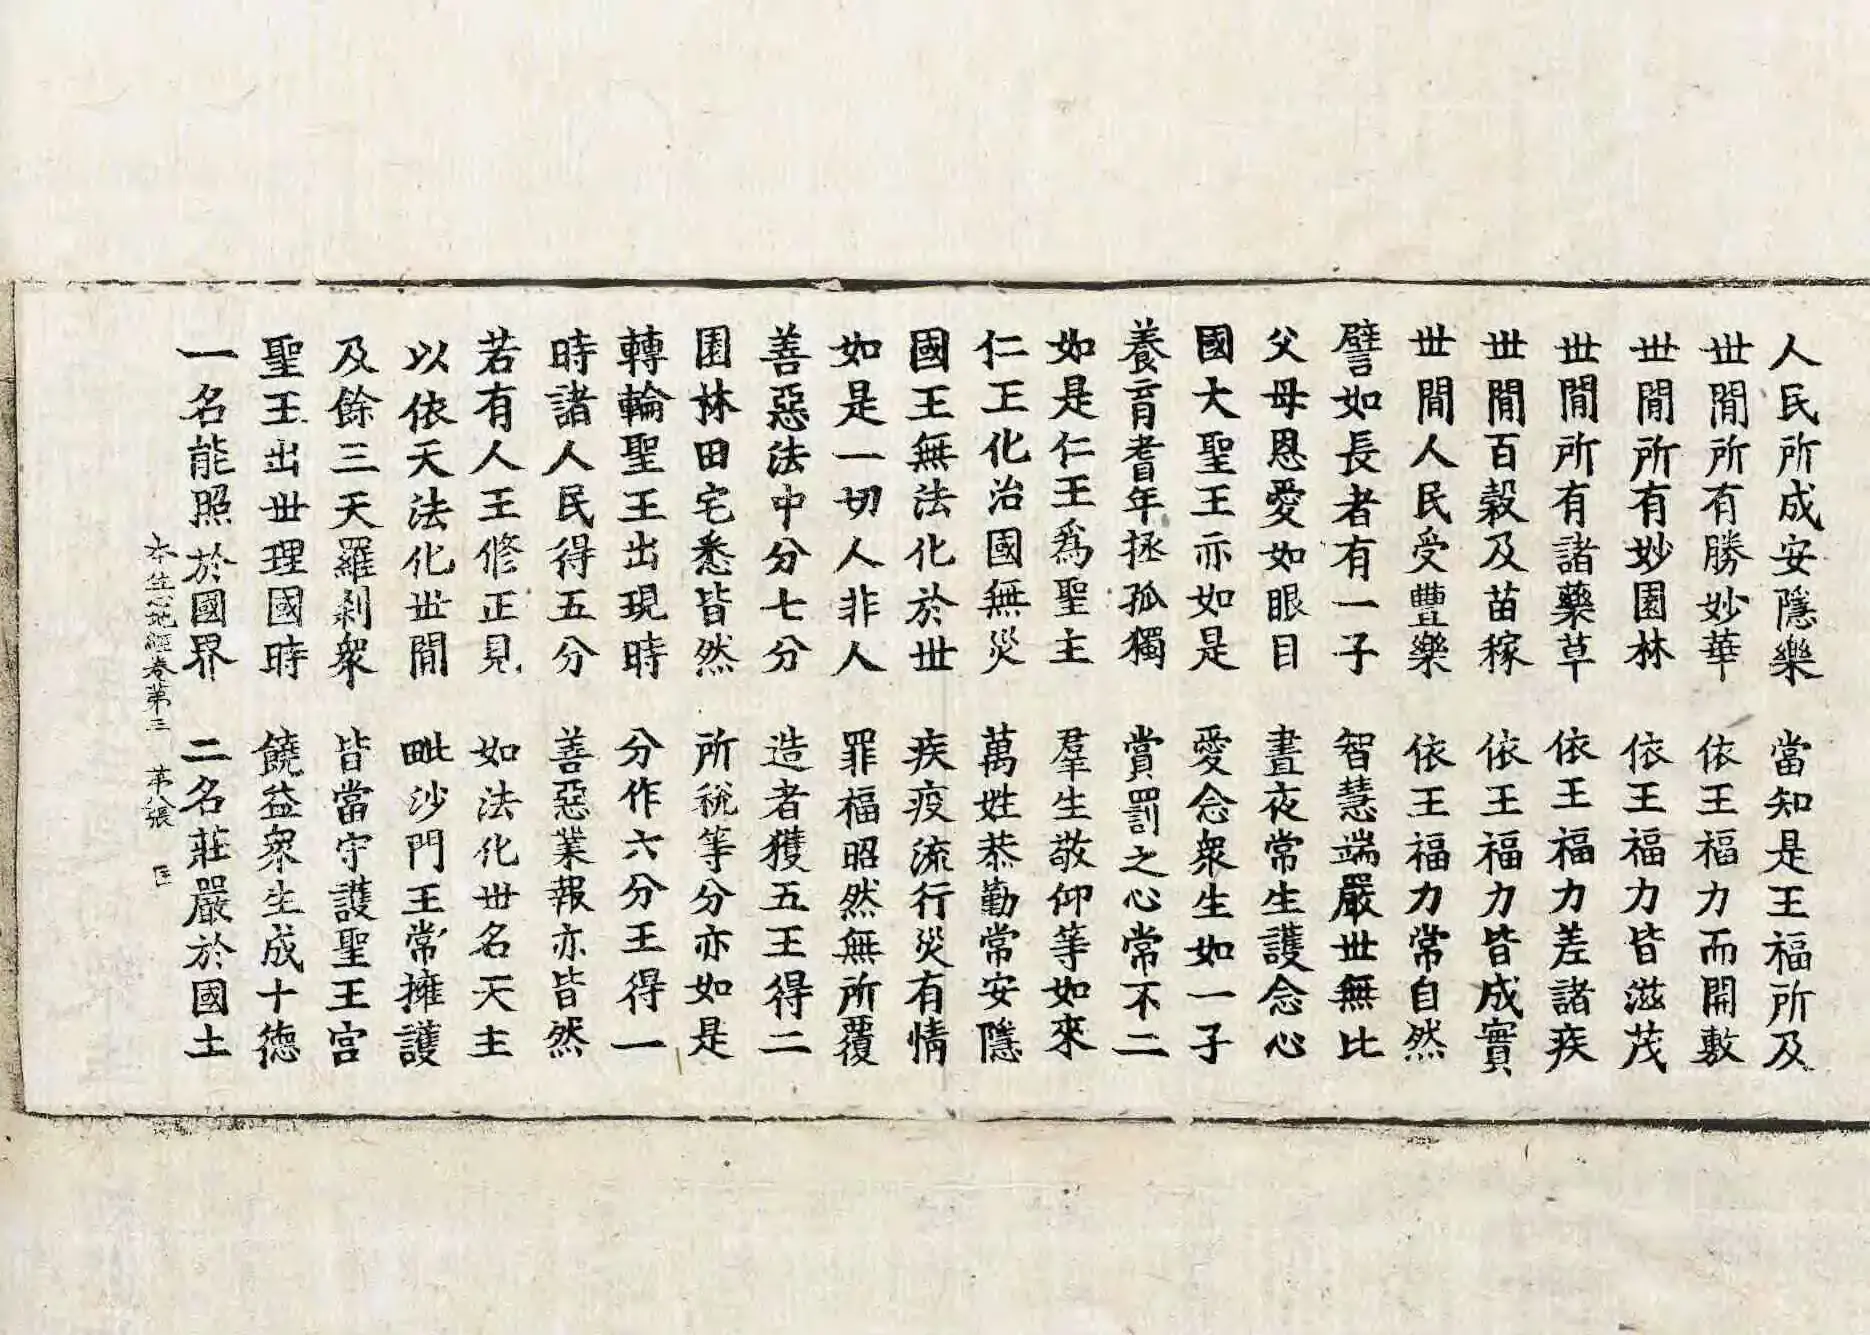 人民所成安隱樂　當知是王福所及
世閒所有勝妙華　依王福力而開敷
世閒所有妙園林　依王福力皆滋茂
世閒所有諸藥草　依王福力差諸疾
世閒百穀及苗稼　依王福力皆成實
世閒人民受豐樂　依王福力常自然
譬如長者有一子　智慧端嚴世無比
父母恩愛如眼目　晝夜常生護念心
國大聖王亦如是　愛念衆生如一子
養育耆年拯孤獨　賞罰之心常不二
如是仁王爲聖主　羣生敬仰等如來
仁王化治國無災　萬姓恭勤常安隱
國王無法化於世　疾疫流行災有情
如是一切人非人　罪福昭然無所覆
善惡法中分七分　造者獲五王得二
園林田宅悉皆然　所稅等分亦如是
轉輪聖王出現時　分作六分王得一
時諸人民得五分　善惡業報亦皆然
若有人王修正見　如法化世名天主
以依天法化世閒　毗沙門王常擁護
及餘三天羅刹衆　皆當守護聖王宮
聖王出世理國時　饒益衆生成十德
一名能照於國界　二名莊嚴於國土
本生心地經卷第三　第八張　匡